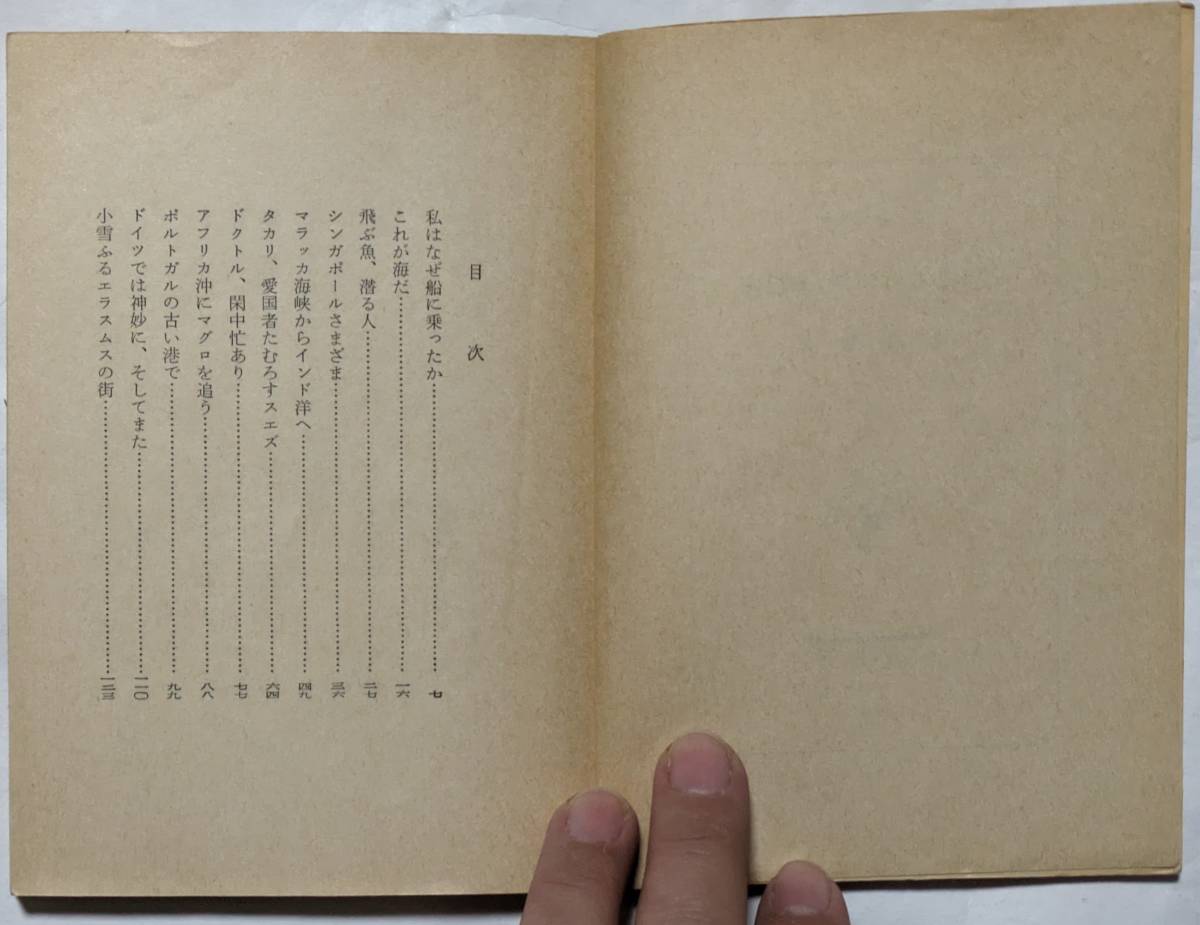 目次
私はなぜ船に乗ったか…………七
これが海だ…………一六
飛ぶ魚、潜る人…………二七
シンガポールさまざま…………三六
マラッカ海峡からインド洋へ…………四九
タカリ、愛国者たむろすスエズ…………六四
ドクトル、閑中忙あり…………七七
アフリカ沖にマグロを追う…………八八
ポルトガルの古い港で…………九九
ドイツでは神妙に、そしてまた…………一一〇
小雪ふるエラスムスの街…………一二三